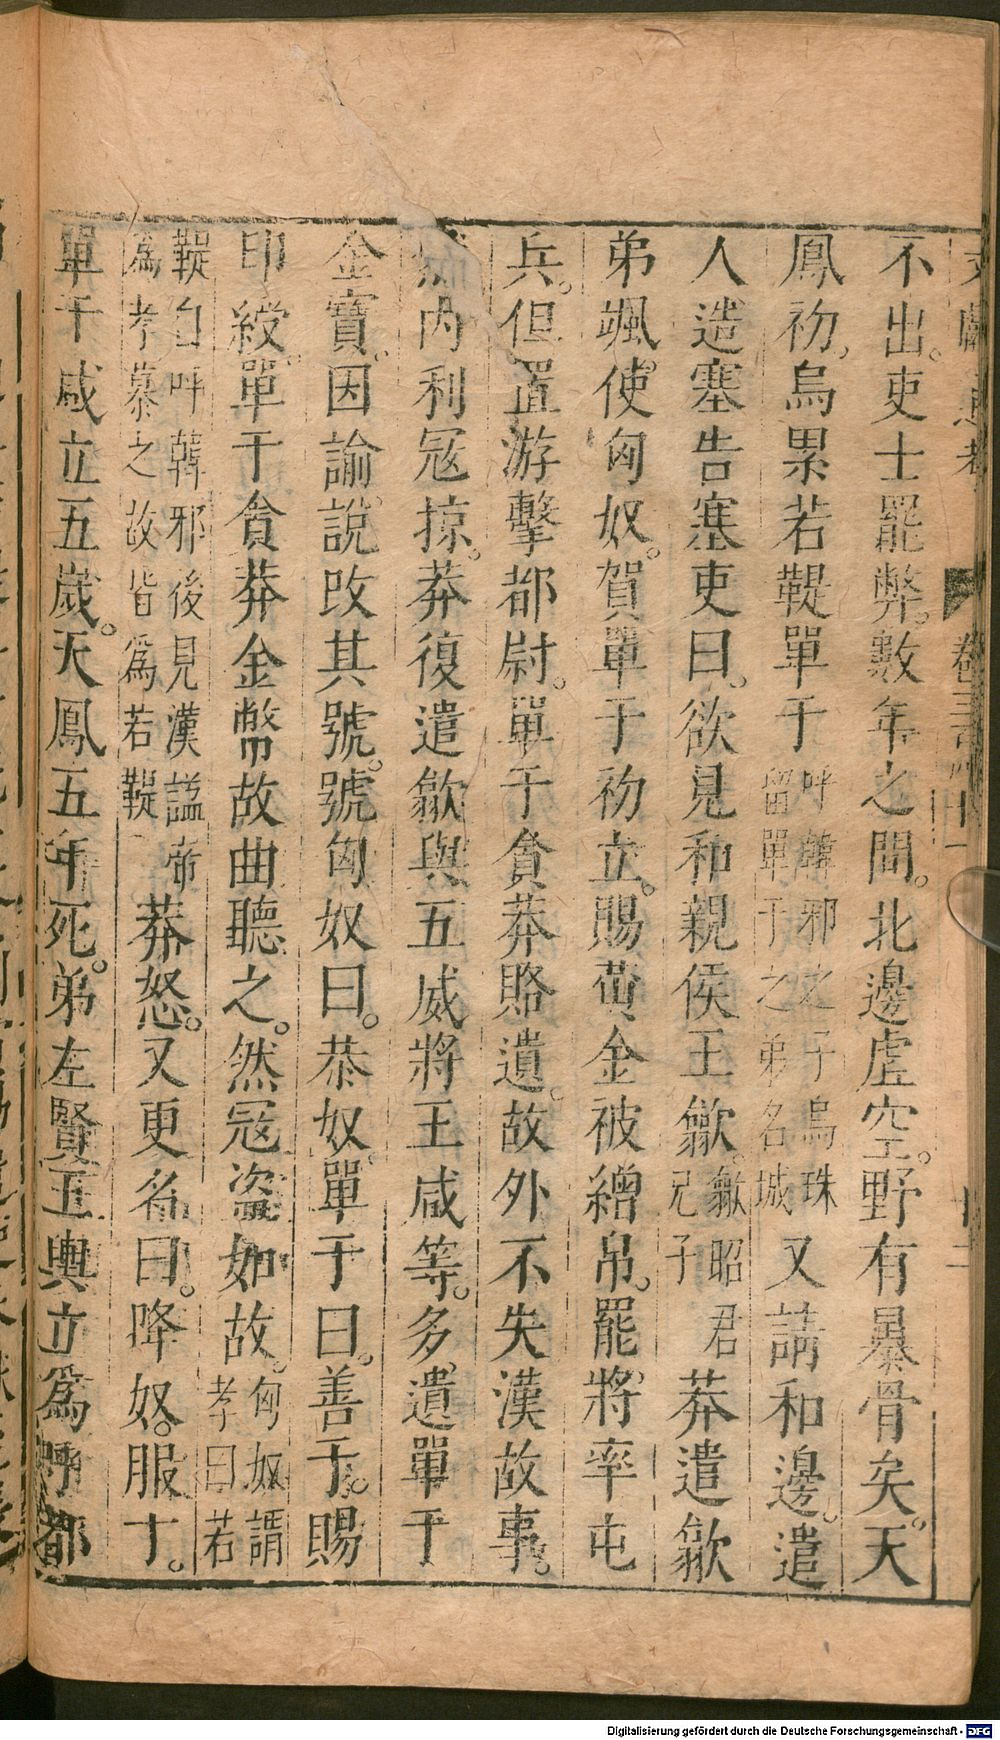 不出。吏士罷弊。數年之間。北邊虛空。野有暴骨矣。天
鳳初。烏累若鞮單于呼韓邪之子烏珠留單于之弟名城又請和邊。遣
人造塞告塞吏曰。欲見和親侯王歙歙昭君兄子莽遣歙
弟颯。使匈奴。賀單于初立。賜黃金被繒帛。罷將率屯
兵。但置游擊都尉。單于貪莽賂遺。故外不失漢故事。
內利寇掠。莽復遣歙與五威將王咸等。多遺單于
金寶。因諭說改其號。號匈奴曰。恭奴單于曰。善于。賜
印綬。單于貪莽金幣故曲聽之。然寇盜如故。匈奴謂孝曰若
鞮自呼韓邪後見漢謚帝為孝慕之故皆為若鞮莽怒。又更名曰。降奴。服于。
單于咸立五歲。天鳳五年死。弟左賢王輿立為呼都
Digitalisierung gefördert durch die Deutsche Forschungsgemeinschaft - DFG